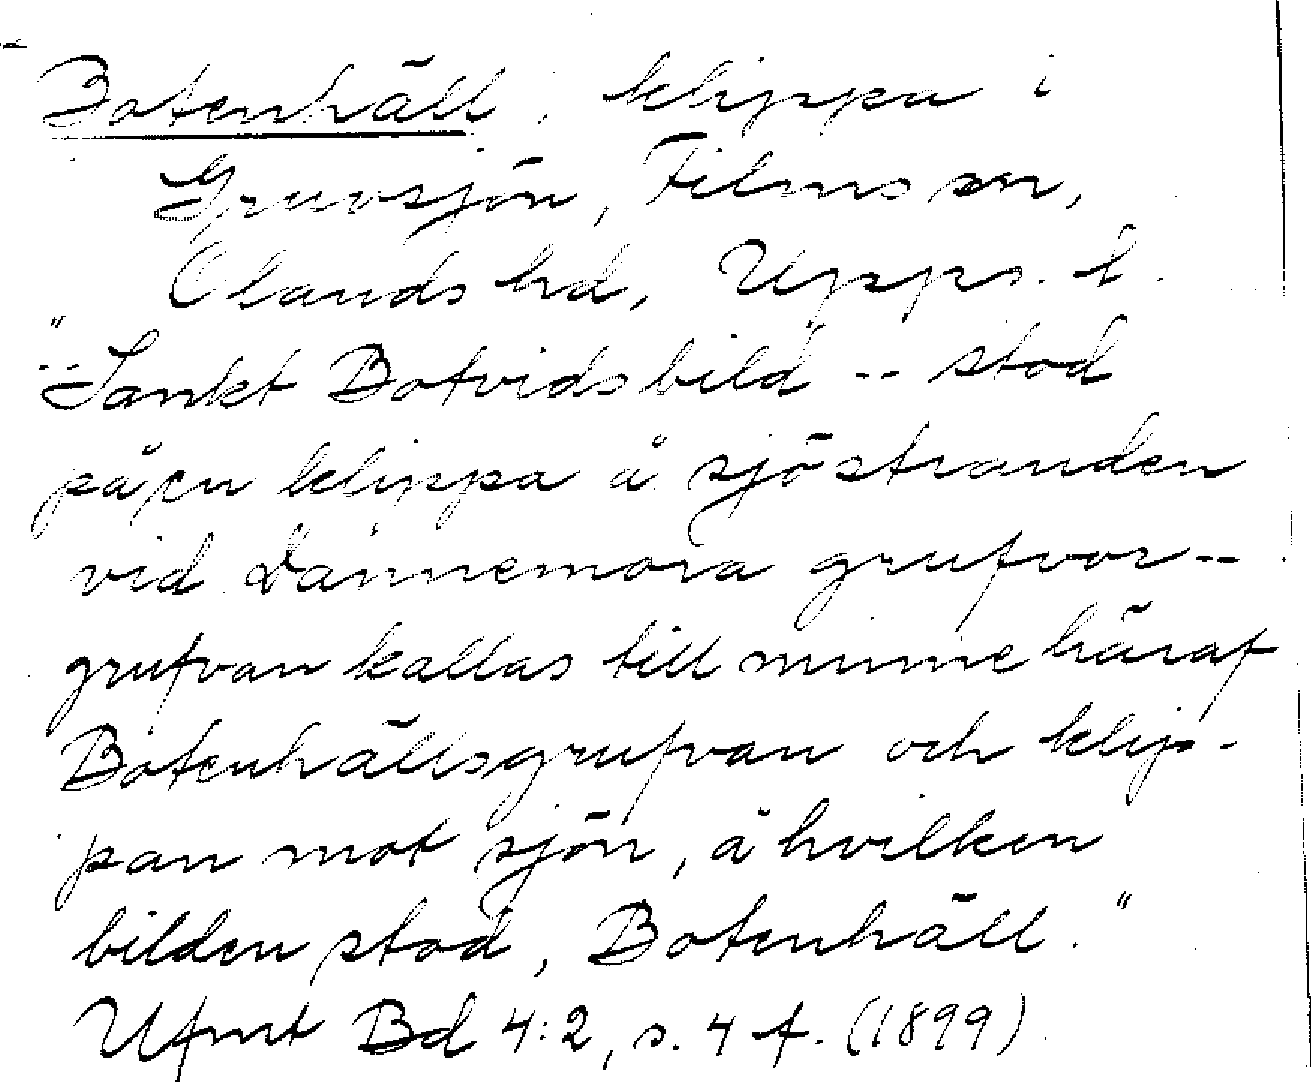 Botenhäll, klippa i
Gruvsjön, Films sn,
Olands hd, Upps. l.
"-- Sankt Botvids bild -- stod
på en klippa å sjöstranden
vid Dannemora grufvor --
grufvan kallas till minne häraf
Botenhällsgrufvan och klip-
pan mot sjön, å hvilken
bilden stod, Botenhäll."
Ufmt Bd 4:2, s. 4 f. (1899)